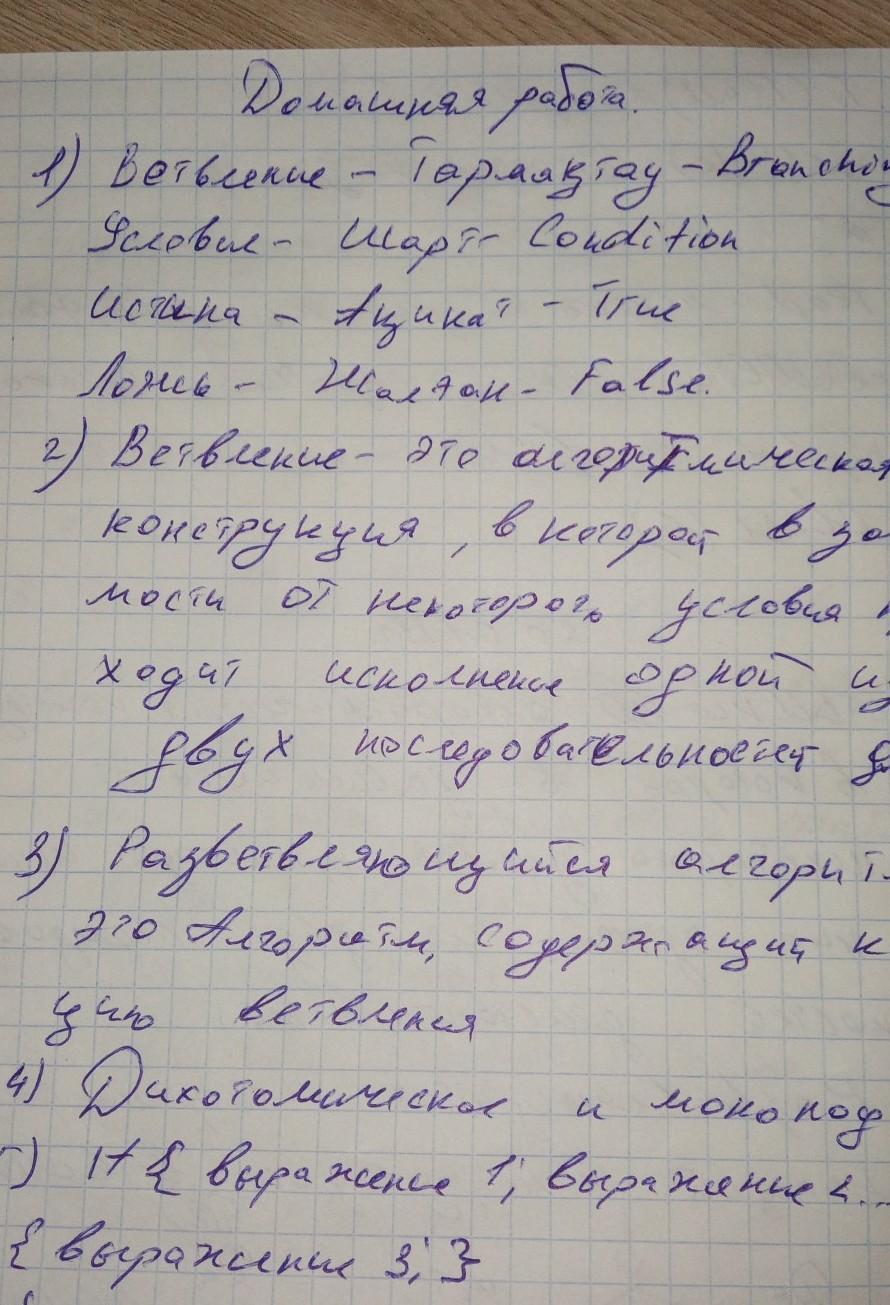 Домашняя работа.
1) Ветвление - Тармақтау - Branching
Условия - Шарт - Condition
Истина - Ақиқат - True
Ложь - Жалған - False.
2) Ветвление - это алгоритмическая
конструкция, в которой в за
мости от некоторого условия п
ходит исполнение одной из
двух последовательностей д
3) Разветвляющийся алгоритм
это Алгоритм, содержащий к
цию ветвления
4) Дихотомическое и монопод
5) If { выражение 1; выражение 2...
{ выражение 3; }